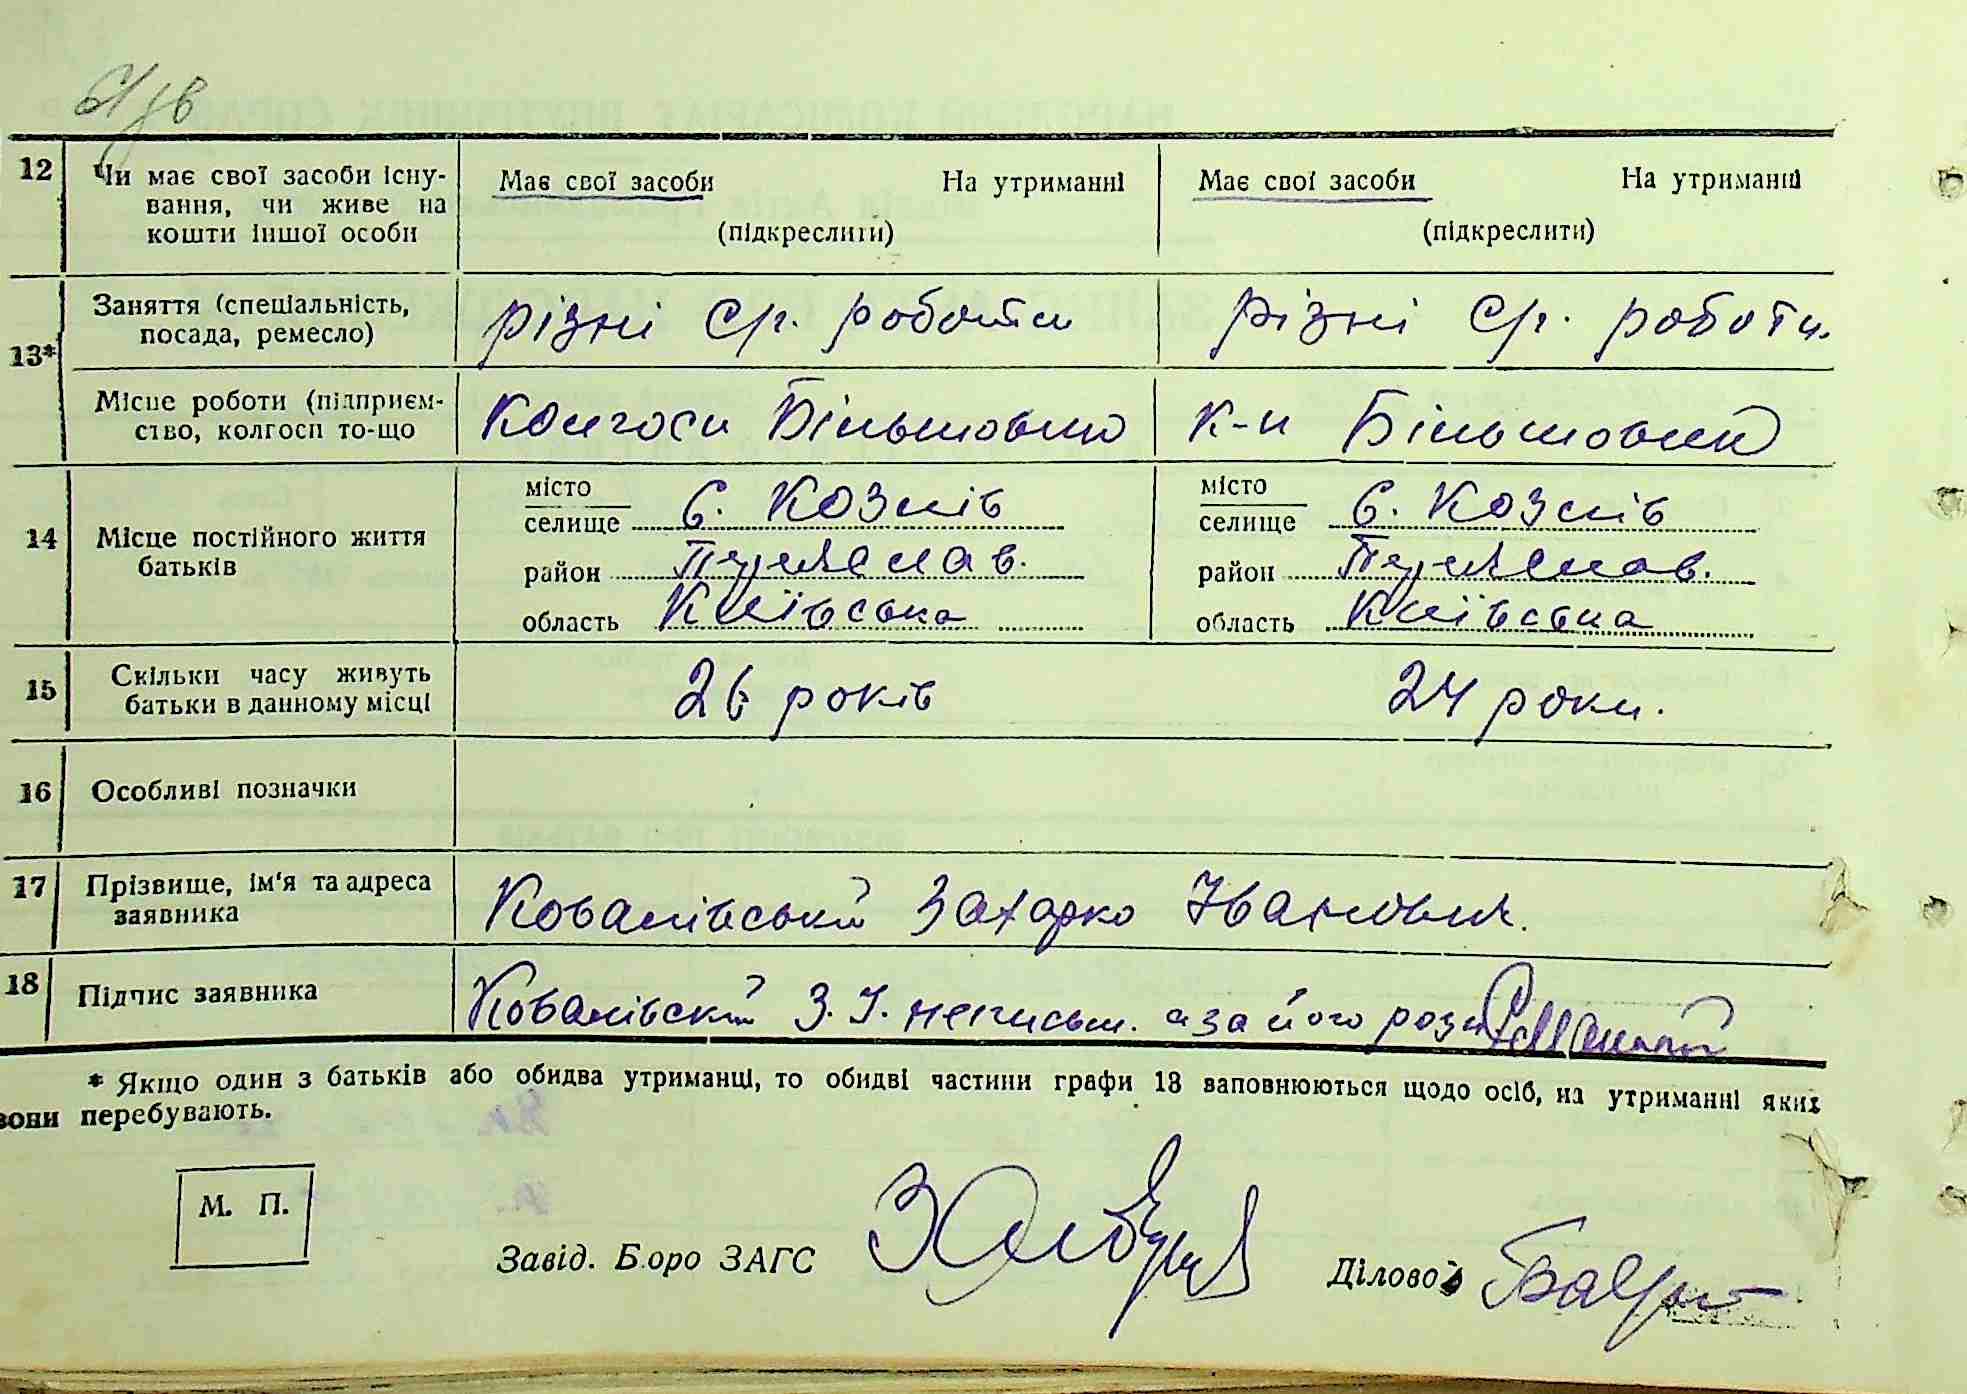 12 Чи має свої засоби існу-
вання, чи живе на
кошти іншої особи
Має свої засоби На утриманні
(підкреслити)
Має свої засоби На утриманні
(підкреслити)
13* Заняття (спеціальність,
посада, ремесло)
різні с/г. роботи
різні с/г. роботи.
Місце роботи (підприєм-
ство, колгосп то-що
Колгосп Більшовик
к-п Більшовик
14 Місце постійного життя
батьків
місто
селище с. Козлів
район Переяслав.
область Київська
місто
селище с. Козлів
район Переяслав.
область Київська
15 Скільки часу живуть
батьки в данному місці
26 років
24 роки.
16 Особливі позначки
17 Прізвище, ім'я та адреса
заявника
Ковалівський Захарко Іванович.
18 Підпис заявника
Ковалівский З. І. неписьм. а за його розп
* Якщо один з батьків або обидва утриманці, то обидві частини графи 13 заповнюються щодо осіб, на утриманні яких
вони перебувають.
М. П.
Завід. Бюро ЗАГС
Діловод